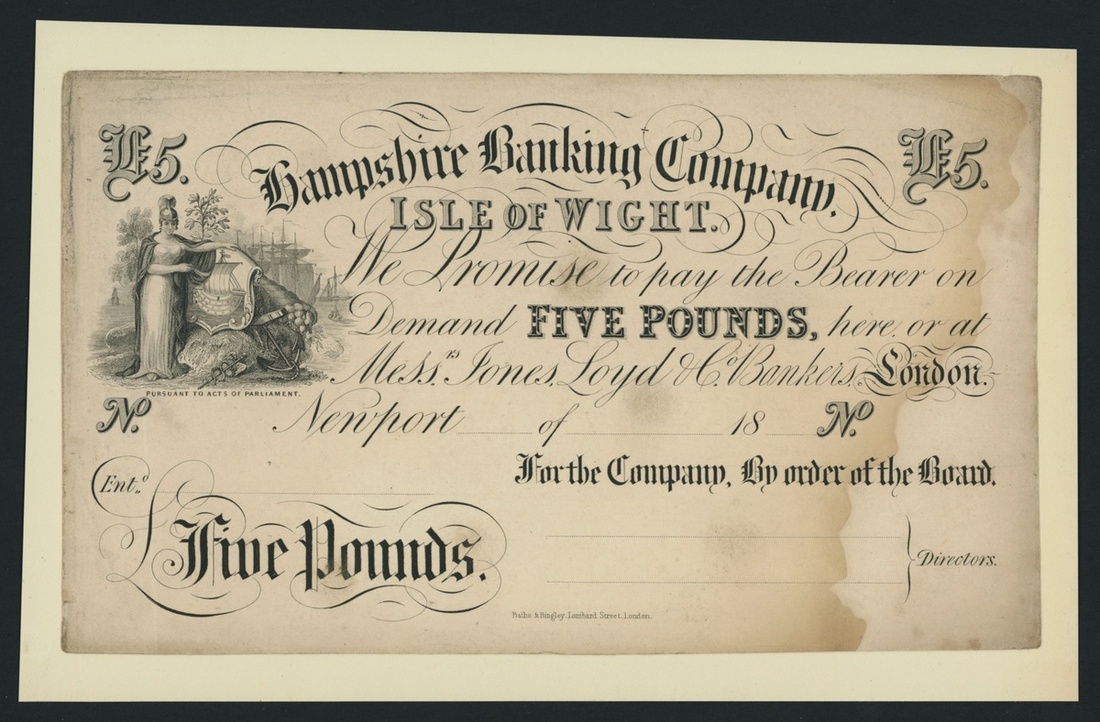 £5. £5.
Hampshire Banking Company,
ISLE OF WIGHT.
We Promise to pay the Bearer on
Demand FIVE POUNDS, here, or at
Messrs. Jones, Loyd & Co. Bankers, London.
PURSUANT TO ACTS OF PARLIAMENT.
No. Newport of 18 No.
For the Company, By order of the Board.
Entd.
Five Pounds.
Directors.
Batho & Bingley. Lombard Street, London.